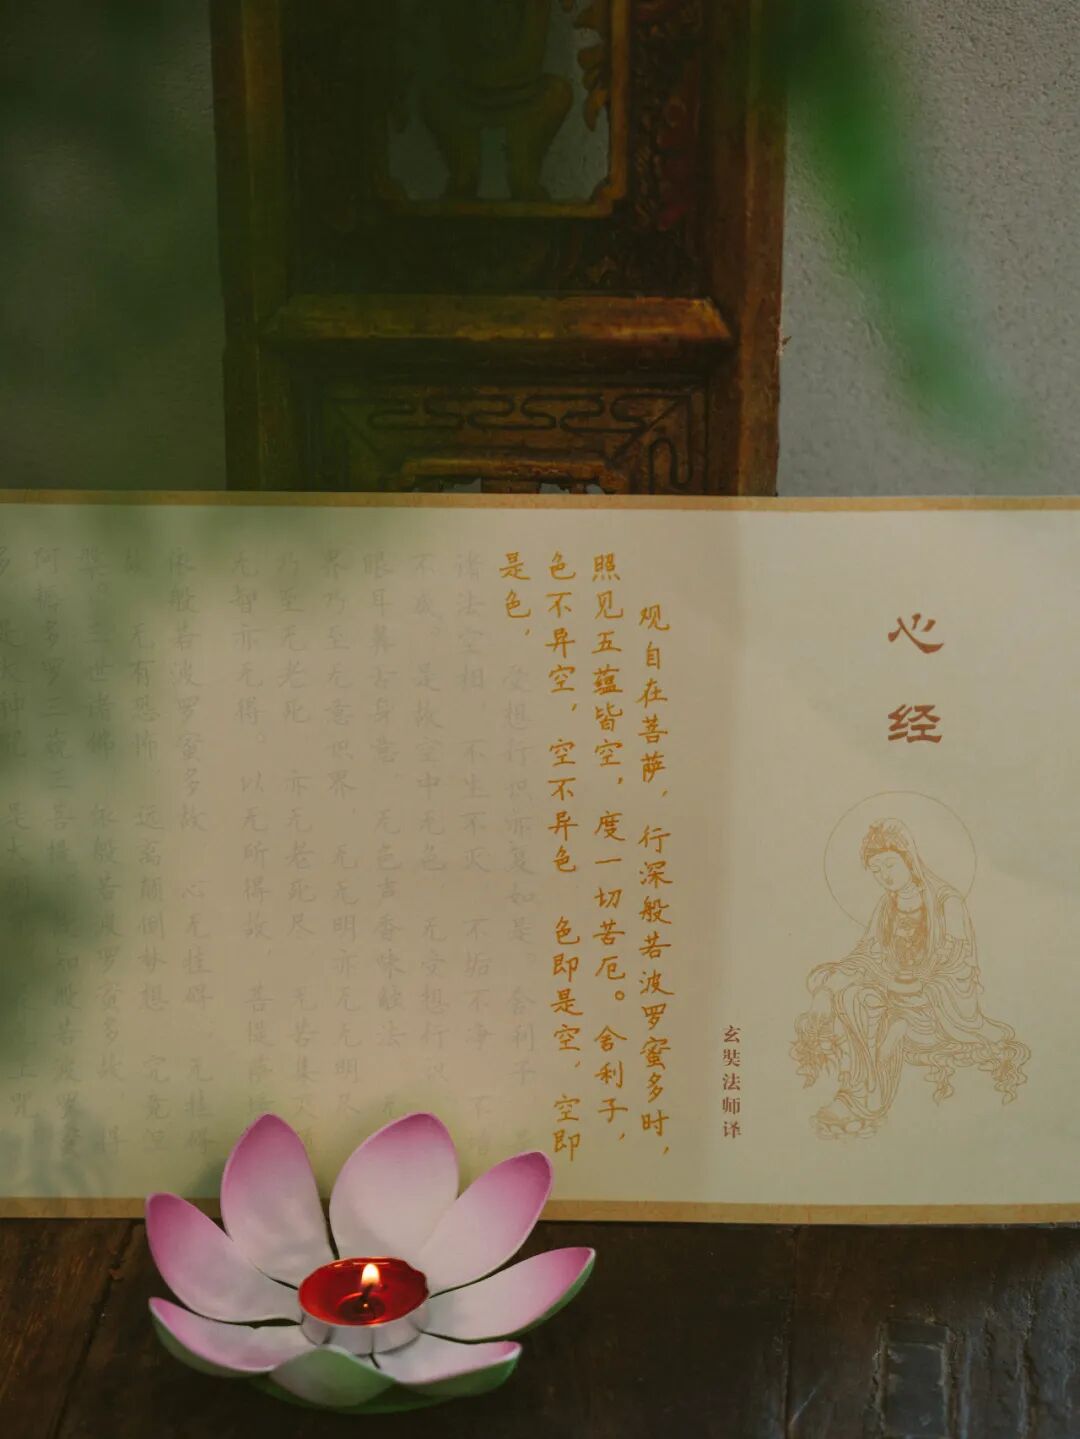 心经
玄奘法师译
观自在菩萨，行深般若波罗蜜多时，
照见五蕴皆空，度一切苦厄。舍利子，
色不异空，空不异色 色即是空，空即
是色， 受想行识亦复如是。舍利子 是
诸法空相 不生不灭 不垢不净 不增
不减。是故空中无色 无受想行识 无
眼耳鼻舌身意，无色声香味触法 无
界乃至无意识界，无无明亦无无明尽
乃至无老死 亦无老死尽 无苦集灭
无智亦无得。以无所得故，菩提萨
依般若波罗蜜多故 心无挂碍 无挂碍
故 无有恐怖，远离颠倒梦想 究竟涅
槃。三世诸佛 依般若波罗蜜多故 得
阿耨多罗三藐三菩提。故知般若波罗蜜
多 是大神咒 是大明咒 是无上咒